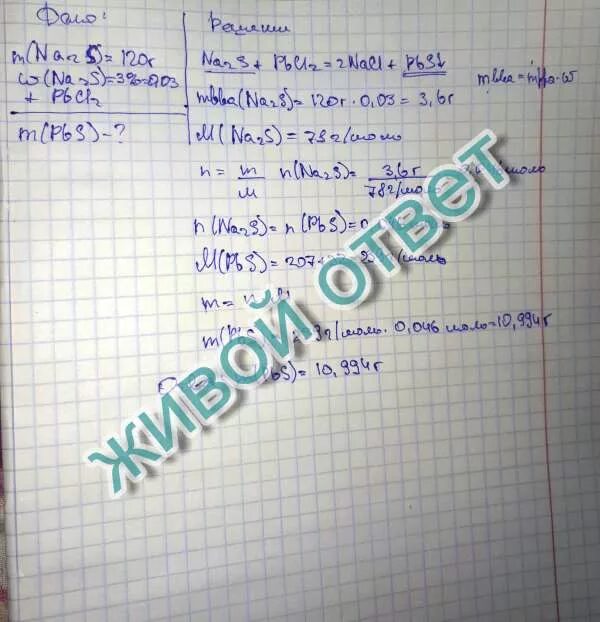 Дано:
m(Na₂S)=120г
ω(Na₂S)=3%=0,03
+ PbCl₂
m(PbS)-?
Решение
Na₂S + PbCl₂ = 2NaCl + PbS↓
mвва = mрра·ω
mвва(Na₂S)=120г·0,03=3,6г
M(Na₂S)=78г/моль
n = m/M n(Na₂S)= 3,6г/78г/моль
n(Na₂S)=n(PbS)=0
M(PbS)=207+
m=
m( г/моль·0,046моль=10,994г
(PbS)=10,994г
ЖИВОЙ ОТВЕТ